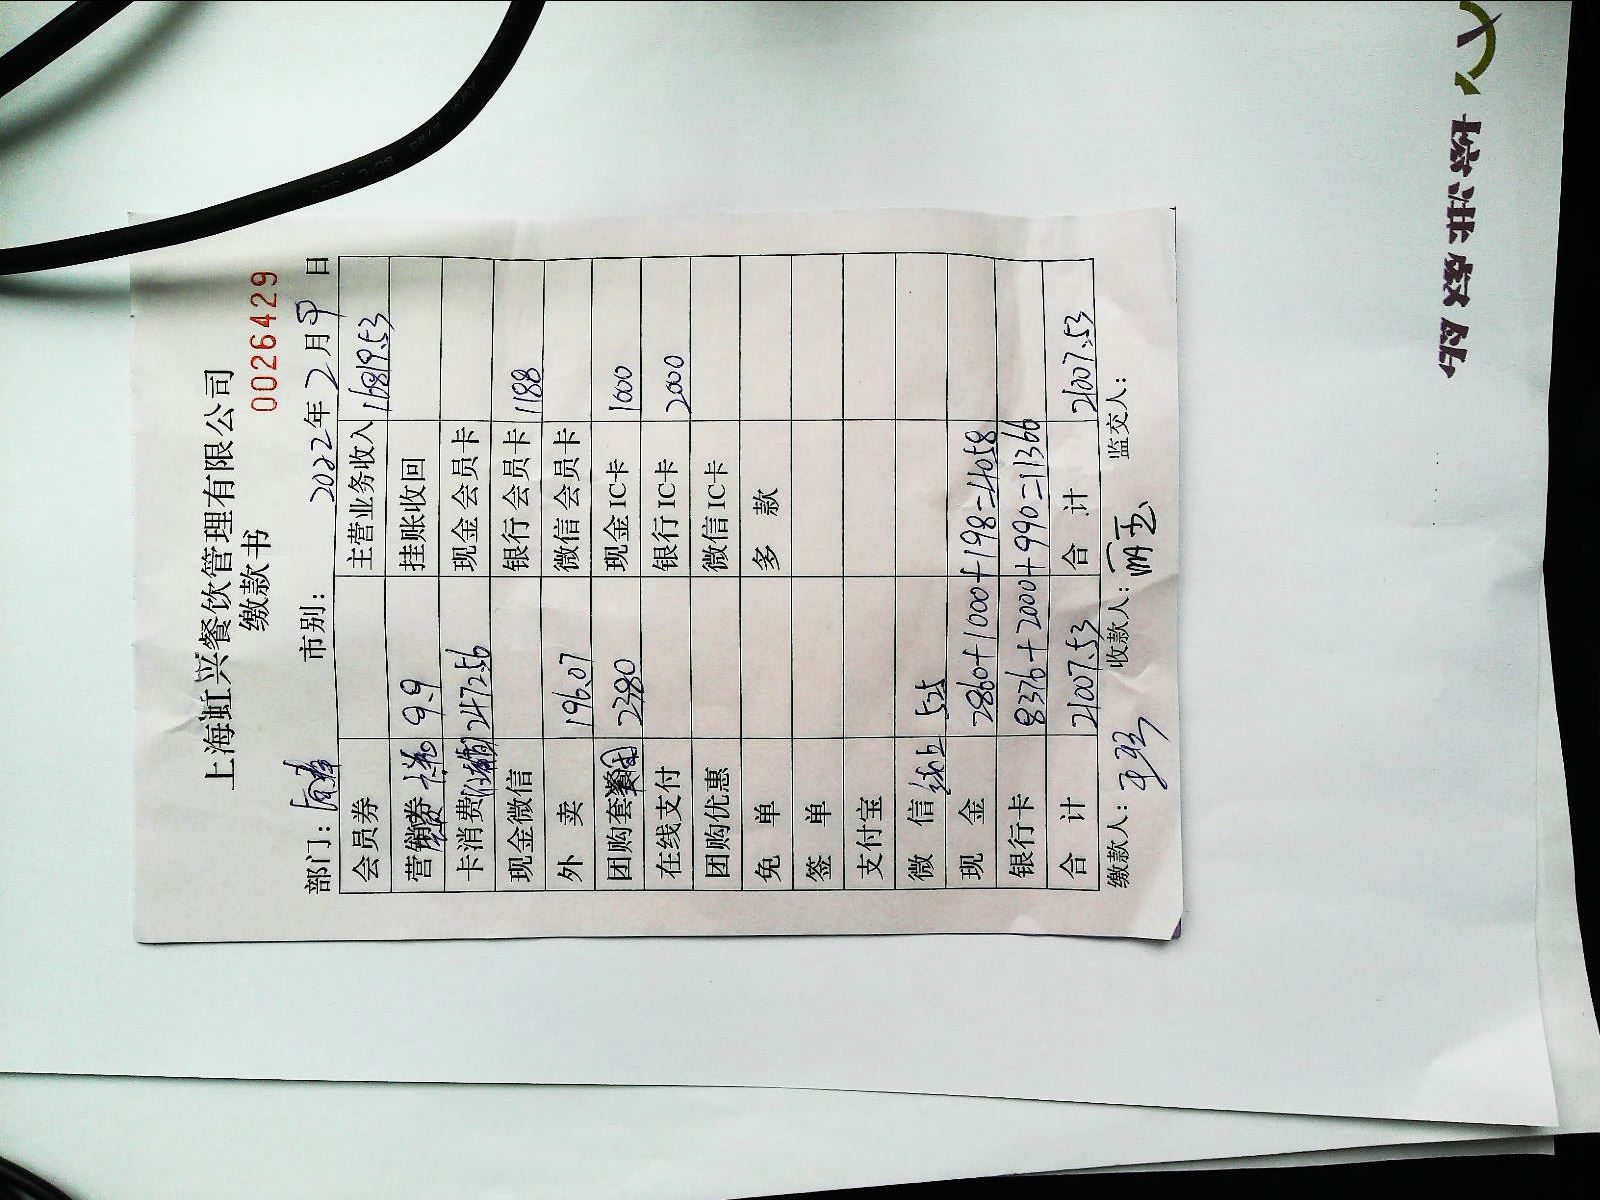 上海虹兴餐饮管理有限公司
缴款书
0026429
部门： 市别： 2022年2月 日
会员券 主营业务收入 16819.53
营销券 9.9 挂账收回
卡消费 2472.56 现金会员卡
现金微信 银行会员卡 1188
外 卖 196.07 微信会员卡
团购套餐 2380 现金IC卡 1000
在线支付 银行IC卡 2000
团购优惠 微信IC卡
免 单 多 款
签 单
支付宝
微 信 线上 525
现 金 2860+1000+198=4058
银行卡 8376+2000+990=11366
合 计 21007.53 合 计 21007.53
缴款人： 收款人： 监交人：